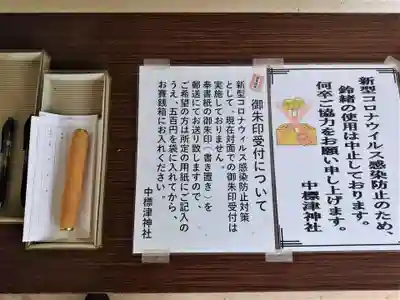 新型コロナウィルス感染防止のため、
鈴緒の使用は中止しております。
何卒ご協力をお願い申し上げます。
中標津神社
御朱印受付について
新型コロナウィルス感染防止対策
として、現在対面での御朱印受付は
実施しておりません。
奉書紙の御朱印(書き置き)を
郵送にてお送り致しますので、
ご希望の方は所定の用紙にご記入の
うえ、五百円を袋に入れてから、
お賽銭箱にお入れください。
中標津神社